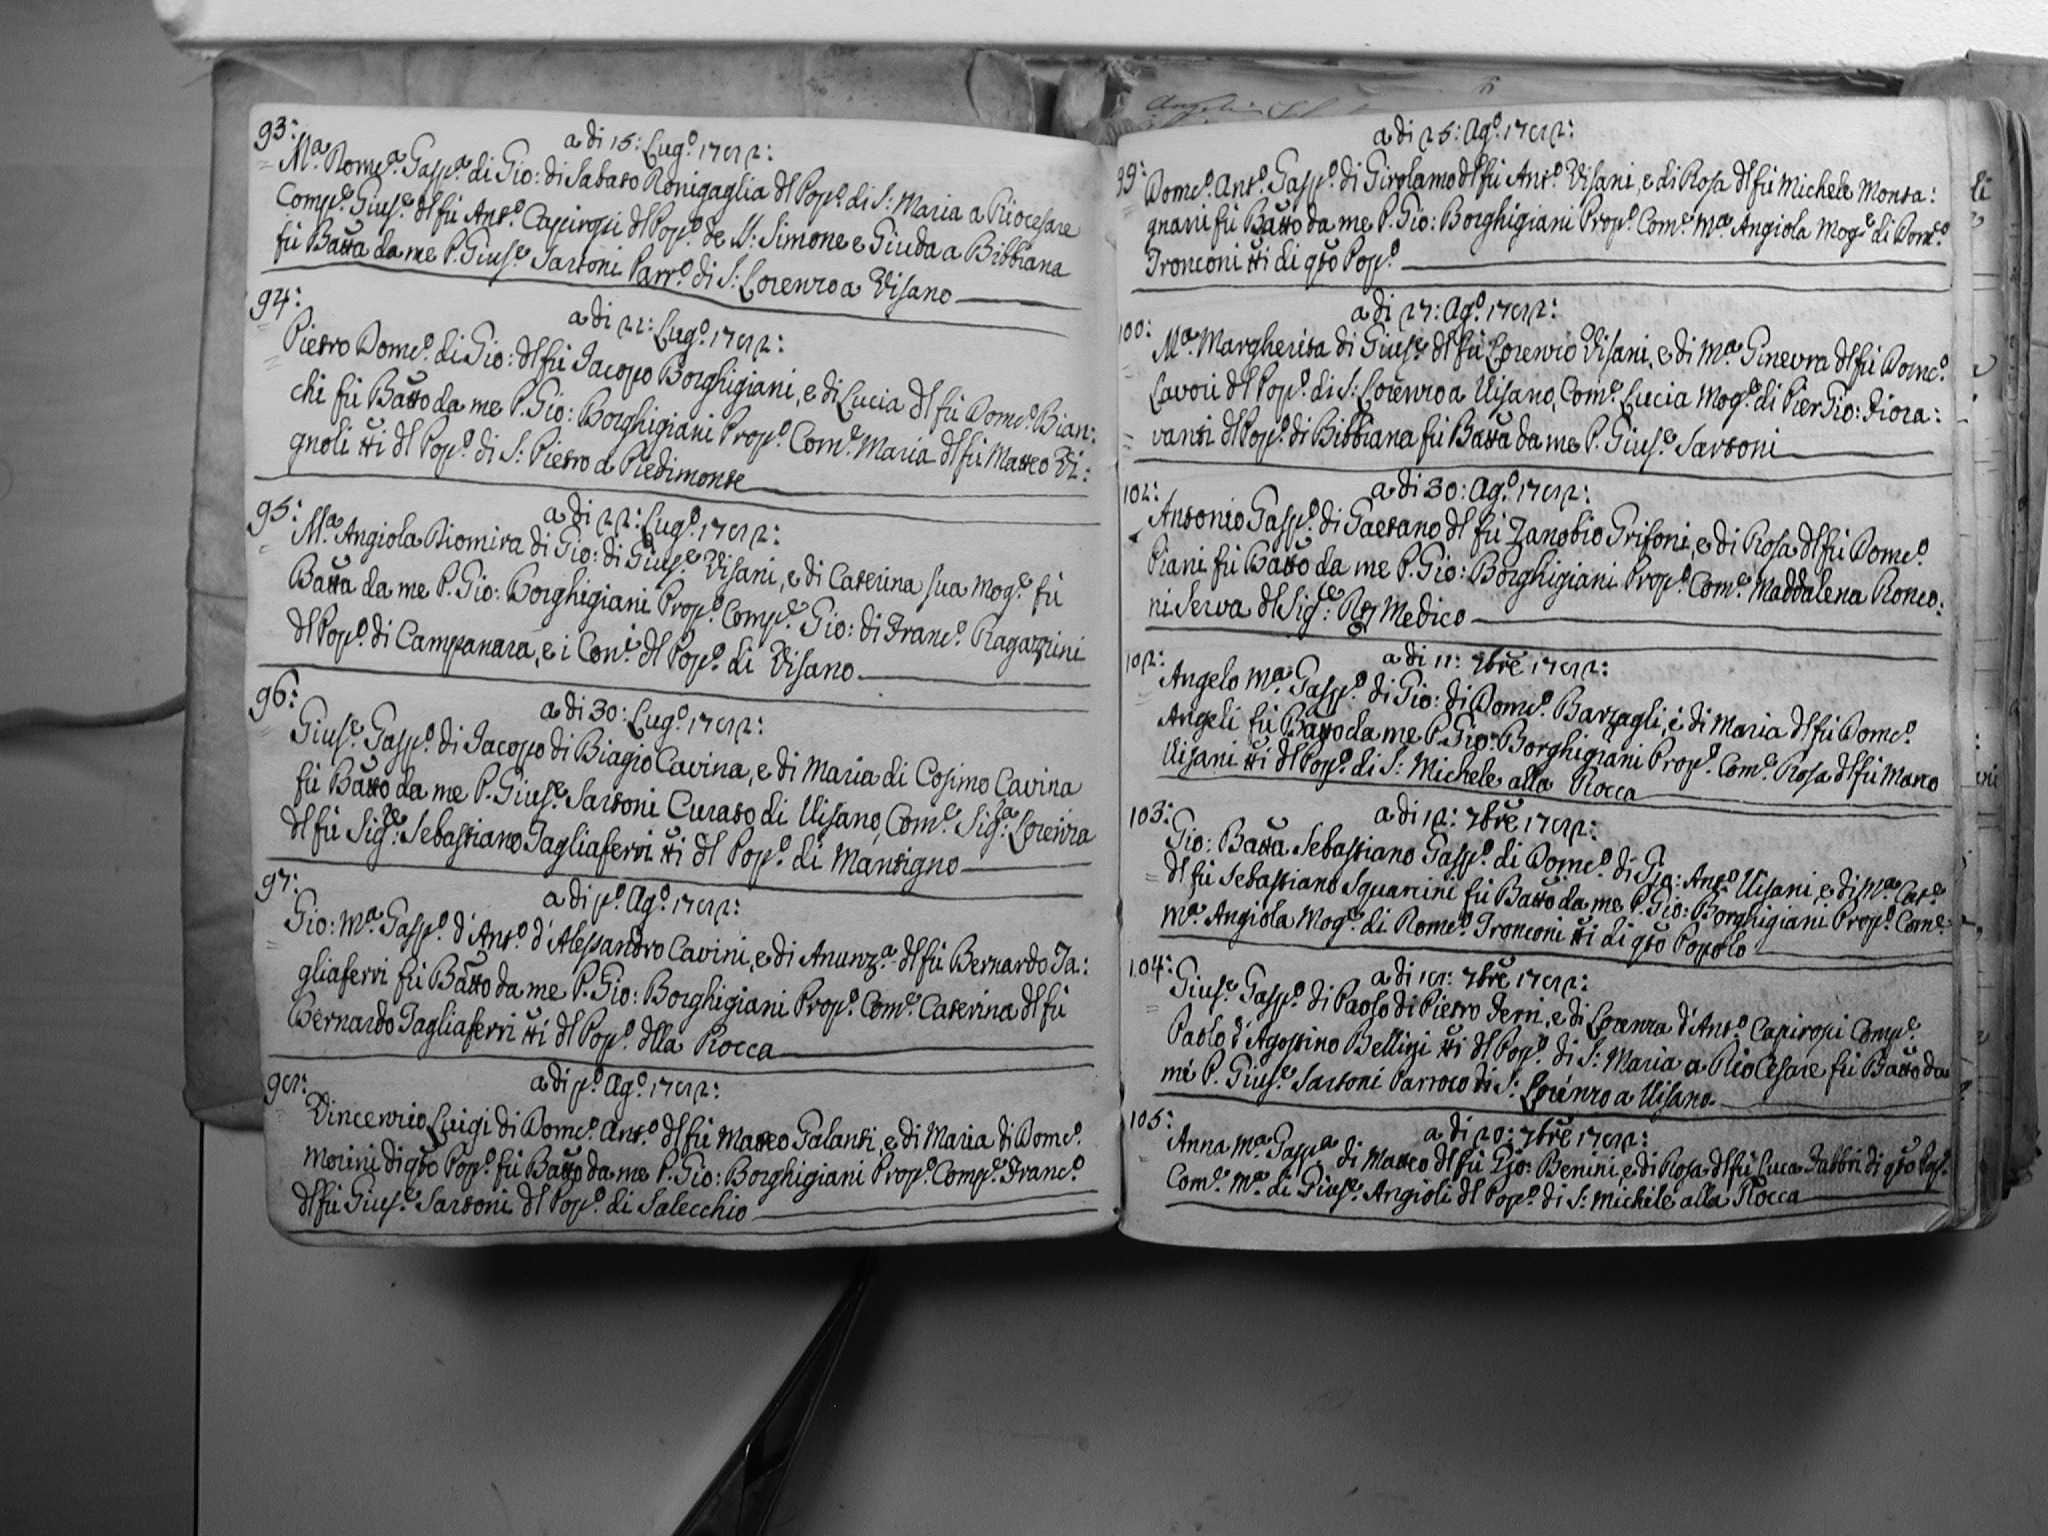 93:
a di 15: Lug.o 1782:
M.a Rom.ca Gasp.a di Gio: di Sabato Ronigaglia dl Pop.o di S: Maria a Riocesare
Comp.e Gius.e dl fù Ant.o Capirossi dl Pop.o de SS: Simone e Giuda a Bibbiana
fù Batta da me P. Gius.e Sartoni Parr.o di S: Lorenzo a Visano
94:
a di 21: Lug.o 1782:
Pietro Dom.co di Gio: dl fù Jacopo Borghigiani, e di Lucia dl fù Dom.co Bian:
chi fù Batto da me P. Gio: Borghigiani Prop.o Com.e Maria dl fù Matteo Vi:
gnoli tti dl Pop.o di S: Pietro a Piedimonte
95:
a di 22: Lug.o 1782:
M.a Angiola Diomira di Gio: di Gius.e Visani, e di Caterina sua Mog.e fù
Batta da me P. Gio: Borghigiani Prop.o Comp.e Gio: di Franc.o Ragazzini
dl Pop.o di Campanara, e i Con.i dl Pop.o di Visano
96:
a di 30: Lug.o 1782:
Gius.e Gasp.o di Jacopo di Biagio Cavina, e di Maria di Cosimo Cavina
fù Batto da me P. Gius.e Sartoni Curato di Visano, Com.e Sig.a Lorenza
dl fù Sig.e Sebastiano Tagliaferri tti dl Pop.o di Mantigno
97:
a di p.o Ag.o 1782:
Gio: M.a Gasp.o d'Ant.o d'Alessandro Cavini, e di Anunz.a dl fù Bernardo Ta:
gliaferri fù Batto da me P. Gio: Borghigiani Prop.o Com.e Caterina dl fù
Bernardo Tagliaferri tti dl Pop.o dlla Rocca
98:
a di p.o Ag.o 1782:
Vincenzio Luigi di Dom.co Ant.o dl fù Matteo Galanti, e di Maria di Dom.co
Morini di qto Pop.o fù Batto da me P. Gio: Borghigiani Prop.o Comp.e Franc.o
dl fù Gius.e Sartoni dl Pop.o di Salecchio
99:
a di 25: Ag.o 1782:
Dom.co Ant.o Gasp.o di Girolamo dl fù Ant.o Visani, e di Rosa dl fù Michele Monta:
gnani fù Batto da me P. Gio: Borghigiani Prop.o Com.e M.a Angiola Mog.e di Dom.co
Tronconi tti di qto Pop.o
100:
a di 27: Ag.o 1782:
M.a Margherita di Gius.e dl fù Lorenzo Visani, e di M.a Ginevra dl fù Dom.co
Lavori dl Pop.o di S: Lorenzo a Visano, Com.e Lucia Mog.e di Pier Gio: Fiora:
vanti dl Pop.o di Bibbiana fù Batta da me P. Gius.e Sartoni
101:
a di 30: Ag.o 1782:
Antonio Gasp.o di Gaetano dl fù Zanobio Grifoni, e di Rosa dl fù Dom.co
Piani fù Batto da me P. Gio: Borghigiani Prop.o Com.e Maddalena Ronco:
ni Serva dl Sig.e Medico
102:
a di 11: 7bre 1782:
Angelo M.a Gasp.o di Gio: di Dom.co Barzagli, e di Maria dl fù Dom.co
Angeli fù Batto da me P. Gio: Borghigiani Prop.o Com.e Rosa dl fù Marco
Visani tti dl Pop.o di S: Michele alla Rocca
103:
a di 12: 7bre 1782:
Gio: Batta Sebastiano Gasp.o di Dom.co di Gio: Ant.o Visani, e di M.a Cat.a
dl fù Sebastiano Squarcini fù Batto da me P. Gio: Borghigiani Prop.o Com.e
M.a Angiola Mog.e di Rom.co Tronconi tti di qto Popolo
104:
a di 18: 7bre 1782:
Gius.e Gasp.o di Paolo di Pietro Ferri, e di Lorenza d'Ant.o Capirossi Comp.e
Paolo d'Agostino Bellini tti dl Pop.o di S: Maria a Rio Cesare fù Batto da
me P. Gius.e Sartoni Parroco di S: Lorenzo a Visano
105:
a di 20: 7bre 1782:
Anna M.a Gasp.a di Matteo dl fù Gio: Benini, e di Rosa dl fù Luca Fabbri di qto Pop.o
Com.e M.a di Gius.e Angioli dl Pop.o di S: Michele alla Rocca